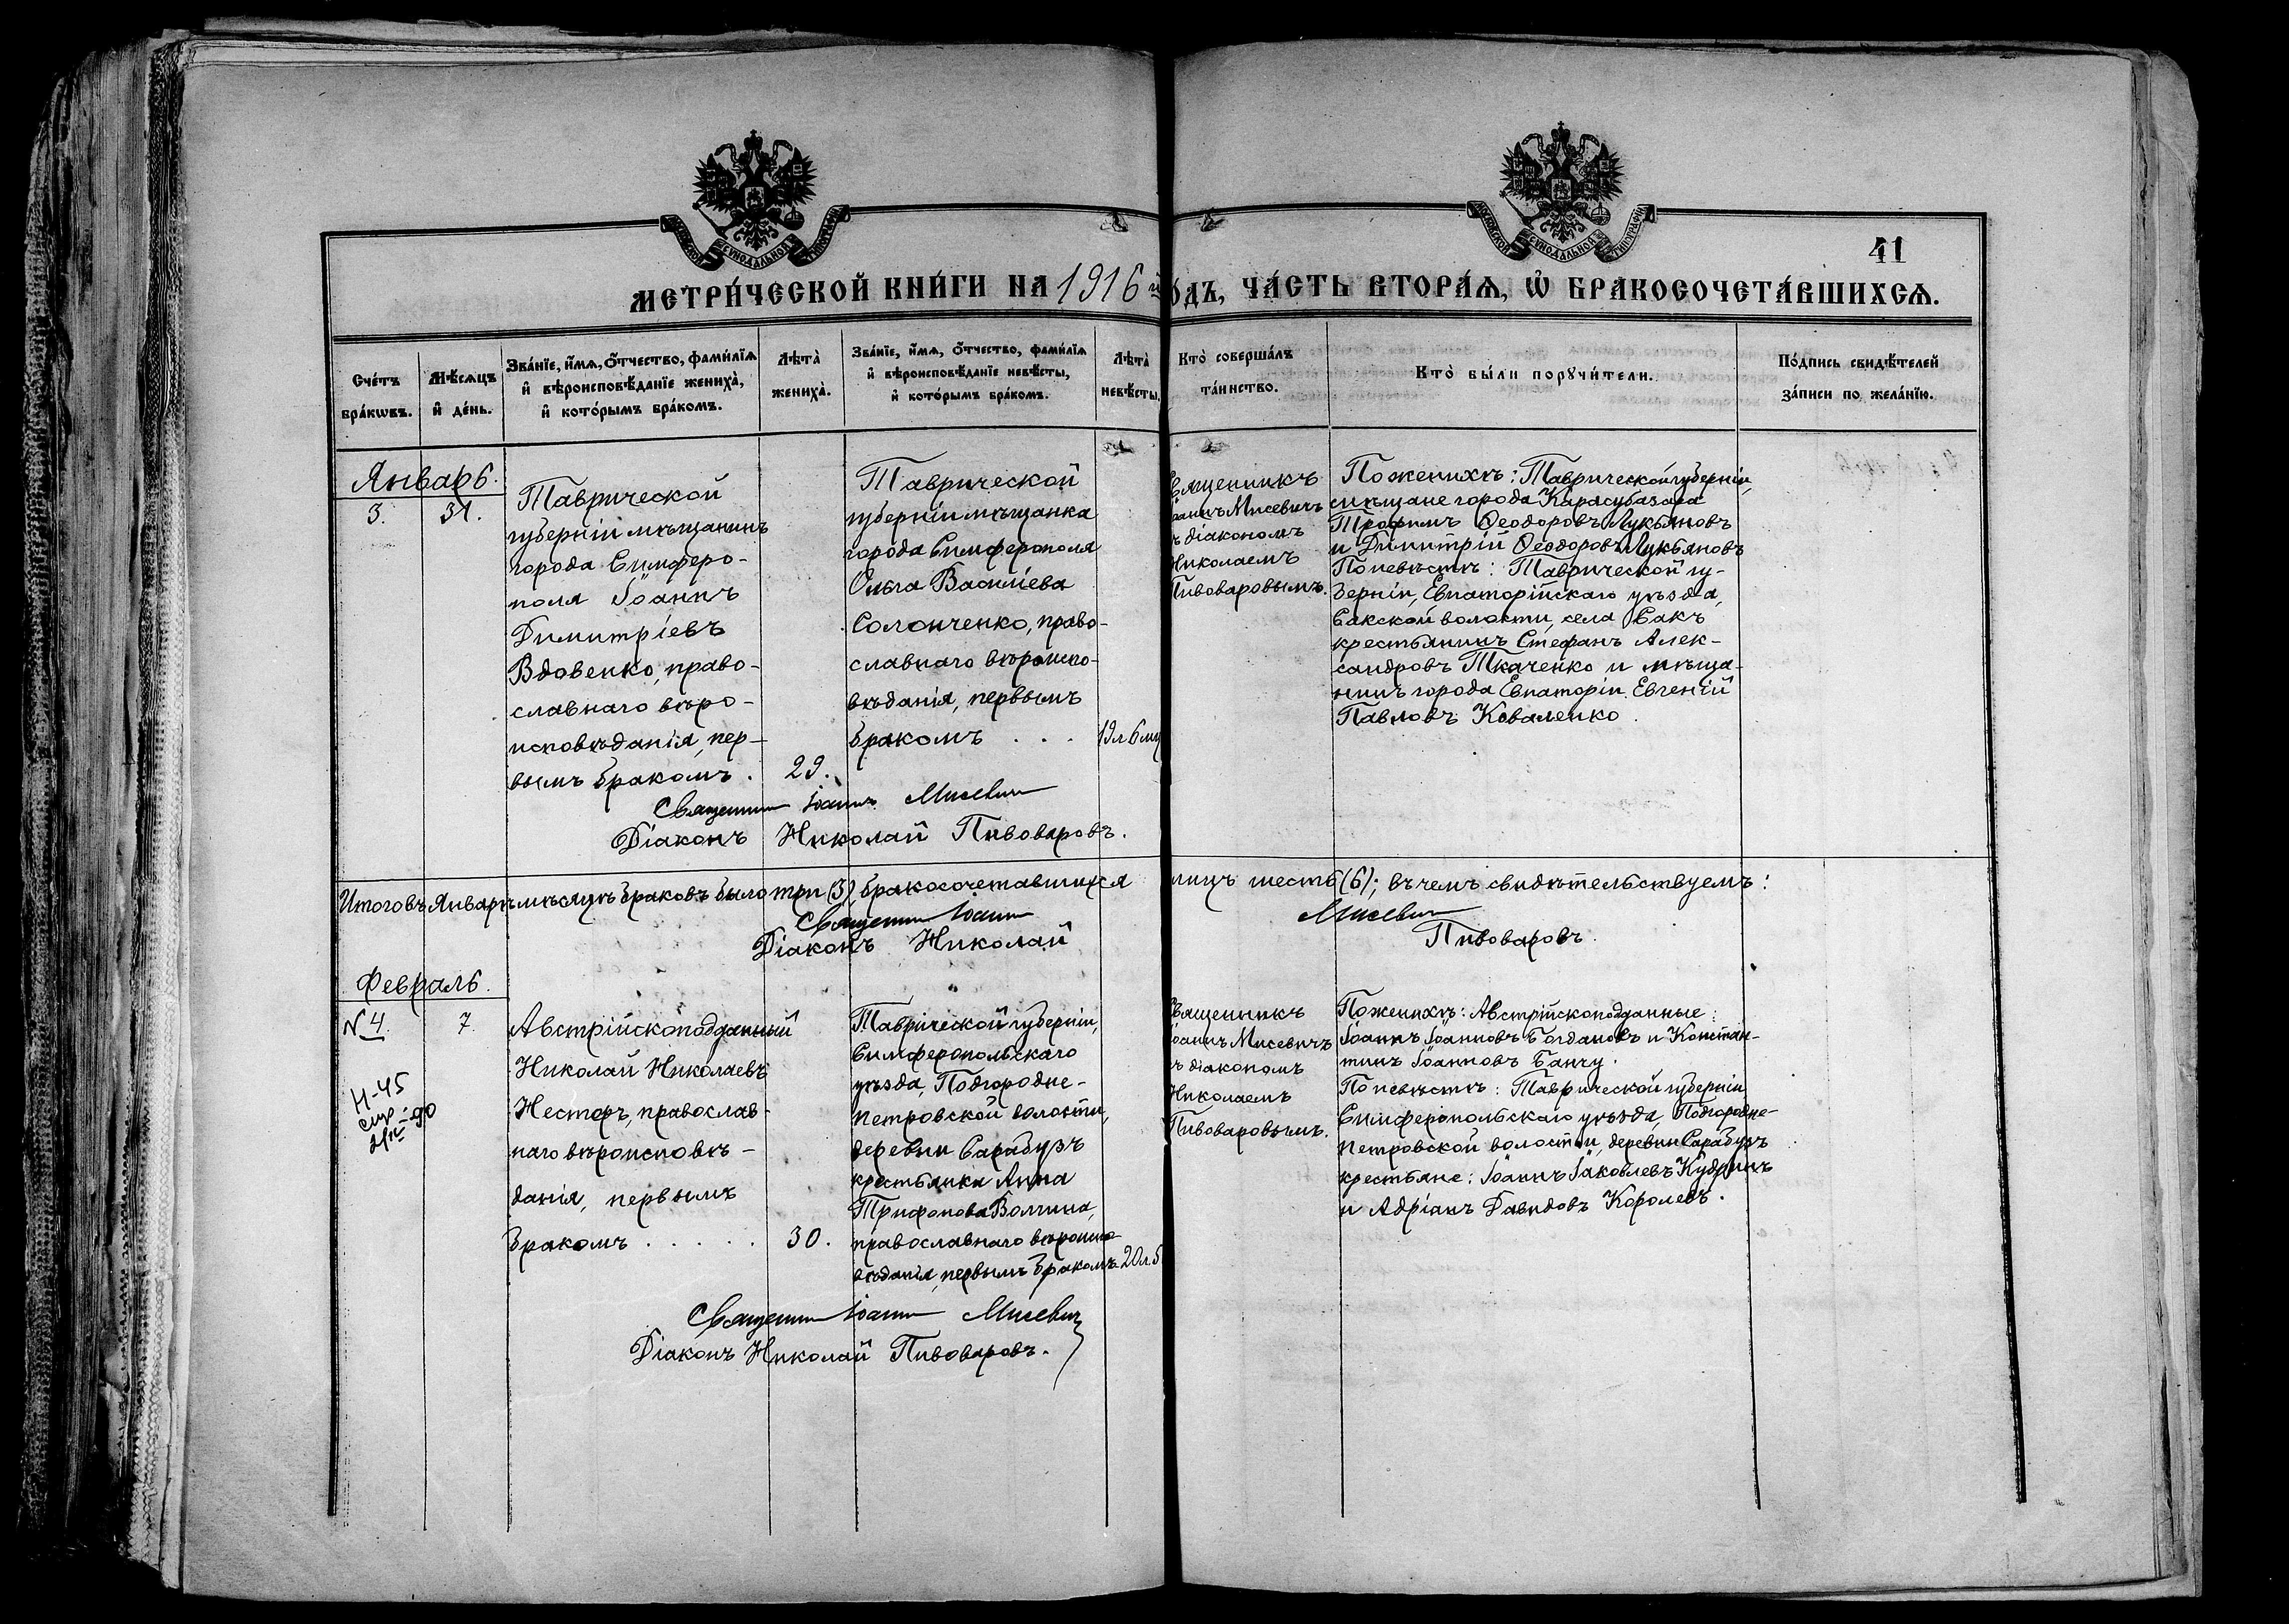 41
МЕТРИ́ЧЕСКОЙ КНИ́ГИ НА 1916 й
О́ДЪ, ЧА́СТЬ ВТОРА́Ѧ, Ѡ҆ БРАКОСОЧЕТА́ВШИХСѦ.
Сче́тъ бра́кѡвъ.
Мѣ́сѧцъ и҆ де́нь.
Зва́нїе, и҆́мѧ, ѻ҆́тчество, фамѝлїѧ
и҆ вѣроисповѣ́данїе женихà,
и҆ кото́рымъ бра́комъ.
Лѣтà женихà.
Зва́нїе, и҆́мѧ, ѻ҆́тчество, фамѝлїѧ
и҆ вѣроисповѣ́данїе невѣ́сты,
и҆ кото́рымъ бра́комъ.
Лѣтà невѣ́сты.
Ктò соверша́лъ
та́инство.
Ктò бы́ли порꙋчи́тели.
По́дпись свидѣ́телей
за́писи по жела́нїю.
Январь.
3.
31.
Таврической
губерніи мѣщанинъ
города Симферо-
поля Іоаннъ
Димитріевъ
Вдовенко, право-
славнаго вѣро-
исповѣданія, пер-
вымъ бракомъ.
29.
Таврической
губерніи мѣщанка
города Симферополя
Ольга Васильева
Солонченко, право-
славнаго вѣроиспо-
вѣданія, первымъ
бракомъ . . .
19л. 6 мц
Священникъ
Іоаннъ Мисевичъ
съ діакономъ
Николаемъ
Пивоваровымъ.
По женихѣ: Таврической губерніи,
мѣщане города Карасубазара
Трофимъ Ѳеодоровъ Лукьяновъ
и Димитрій Ѳеодоровъ Лукьяновъ
По невѣстѣ: Таврической гу-
берніи, Евпаторійскаго уѣзда,
Сакской волости, села Сакъ
крестьянинъ Стефанъ Алек-
сандровъ Ткаченко и мѣща-
нинъ города Евпаторіи Евгеній
Павловъ Коваленко.
Священникъ Іоаннъ Мисевич
Діаконъ Николай Пивоваровъ.
Итого въ Январѣ мѣсяцѣ браковъ было три (3), бракосочетавшихся
лицъ шесть (6); въ чемъ свидѣтельствуемъ:
Священникъ Іоаннъ Мисевич
Діаконъ Николай Пивоваровъ.
Февраль.
№ 4.
7.
Н-45
90
Австрійскоподданный
Николай Николаевъ
Нестеръ, православ-
наго вѣроисповѣ-
данія, первымъ
бракомъ . . . . .
30.
Таврической губерніи,
Симферопольскаго
уѣзда, Подгородне-
Петровской волости,
деревни Сарабузъ
крестьянка Анна
Трифонова Волгина,
православнаго вѣроиспо-
вѣданія, первымъ бракомъ
20 л. 5
Священникъ
Іоаннъ Мисевичъ
съ діакономъ
Николаемъ
Пивоваровымъ.
По женихѣ: Австрійскоподданные:
Іоаннъ Іоанновъ Богдановъ и Констан-
тинъ Іоанновъ Банчу.
По невѣстѣ: Таврической губерніи
Симферопольскаго уѣзда, Подгородне-
Петровской волости, деревни Сарабузъ
крестьяне: Іоаннъ Іаковлевъ Кудринъ
и Адріанъ Давидовъ Королевъ.
Священникъ Іоаннъ Мисевич
Діаконъ Николай Пивоваровъ.